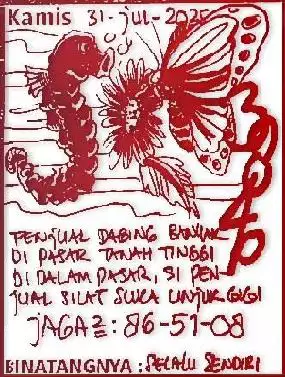 Kamis 31-jul-2025
PENJUAL DAGING BANYAK
DI PASAR TANAH TINGGI
DI DALAM PASAR, SI PEN-
JUAL SILAT SUKA UNJUK GIGI
JAGA2 : 86-51-08
BINATANGNYA : SELALU SENDIRI